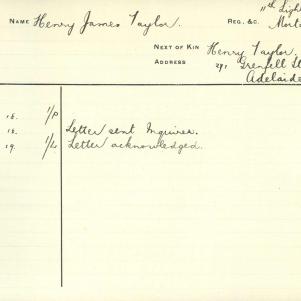 11th Light
NAME Henry James Taylor. REG. &C. Morta
NEXT OF KIN Henry Taylor.
ADDRESS 291 Grenfell St
Adelaide
15. 1/P
18. Letter sent Inquirer.
19. 1/L Letter acknowledged.